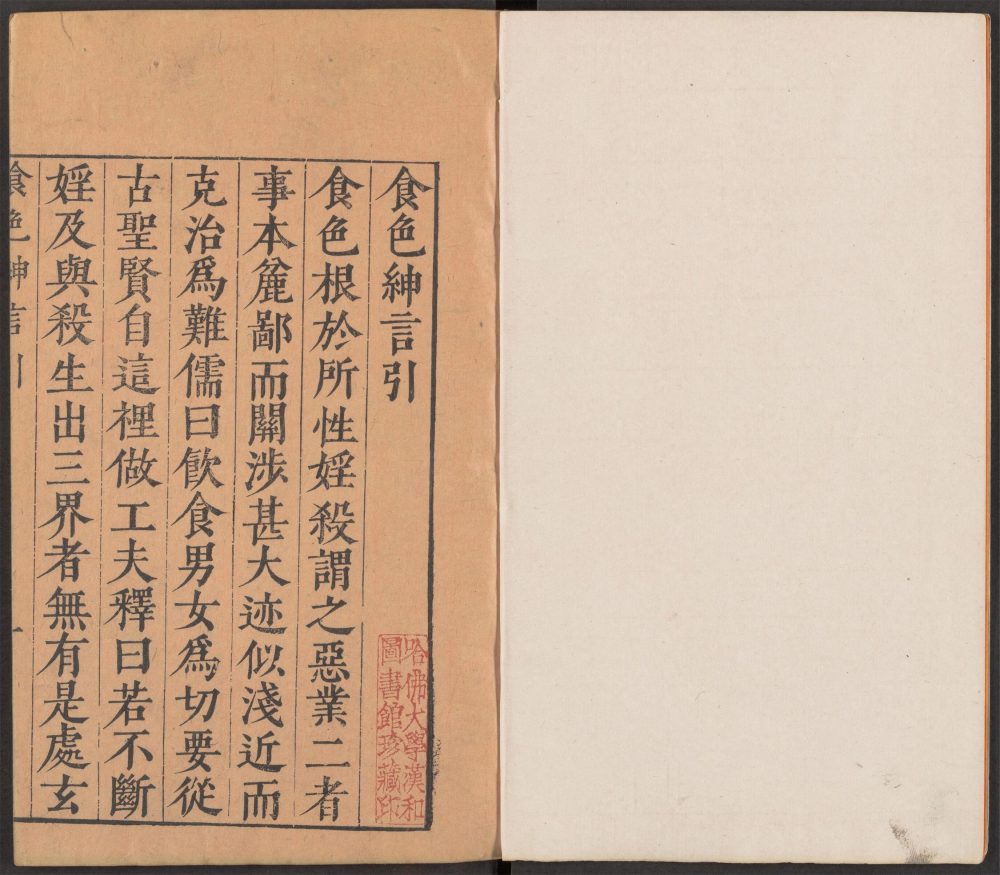 食色紳言引
食色根於所性婬殺謂之惡業二者
事本麄鄙而關涉甚大迹似淺近而
克治爲難儒曰飲食男女爲切要從
古聖賢自這裡做工夫釋曰若不斷
婬及與殺生出三界者無有是處玄
食色紳言引
一
哈佛大學漢和
圖書館珍藏印